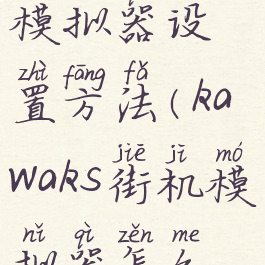 模拟器设
zhì fāng fǎ
置方法(ka
jiē jī mó
waks街机模
nǐ qì zěn me
拟器怎么